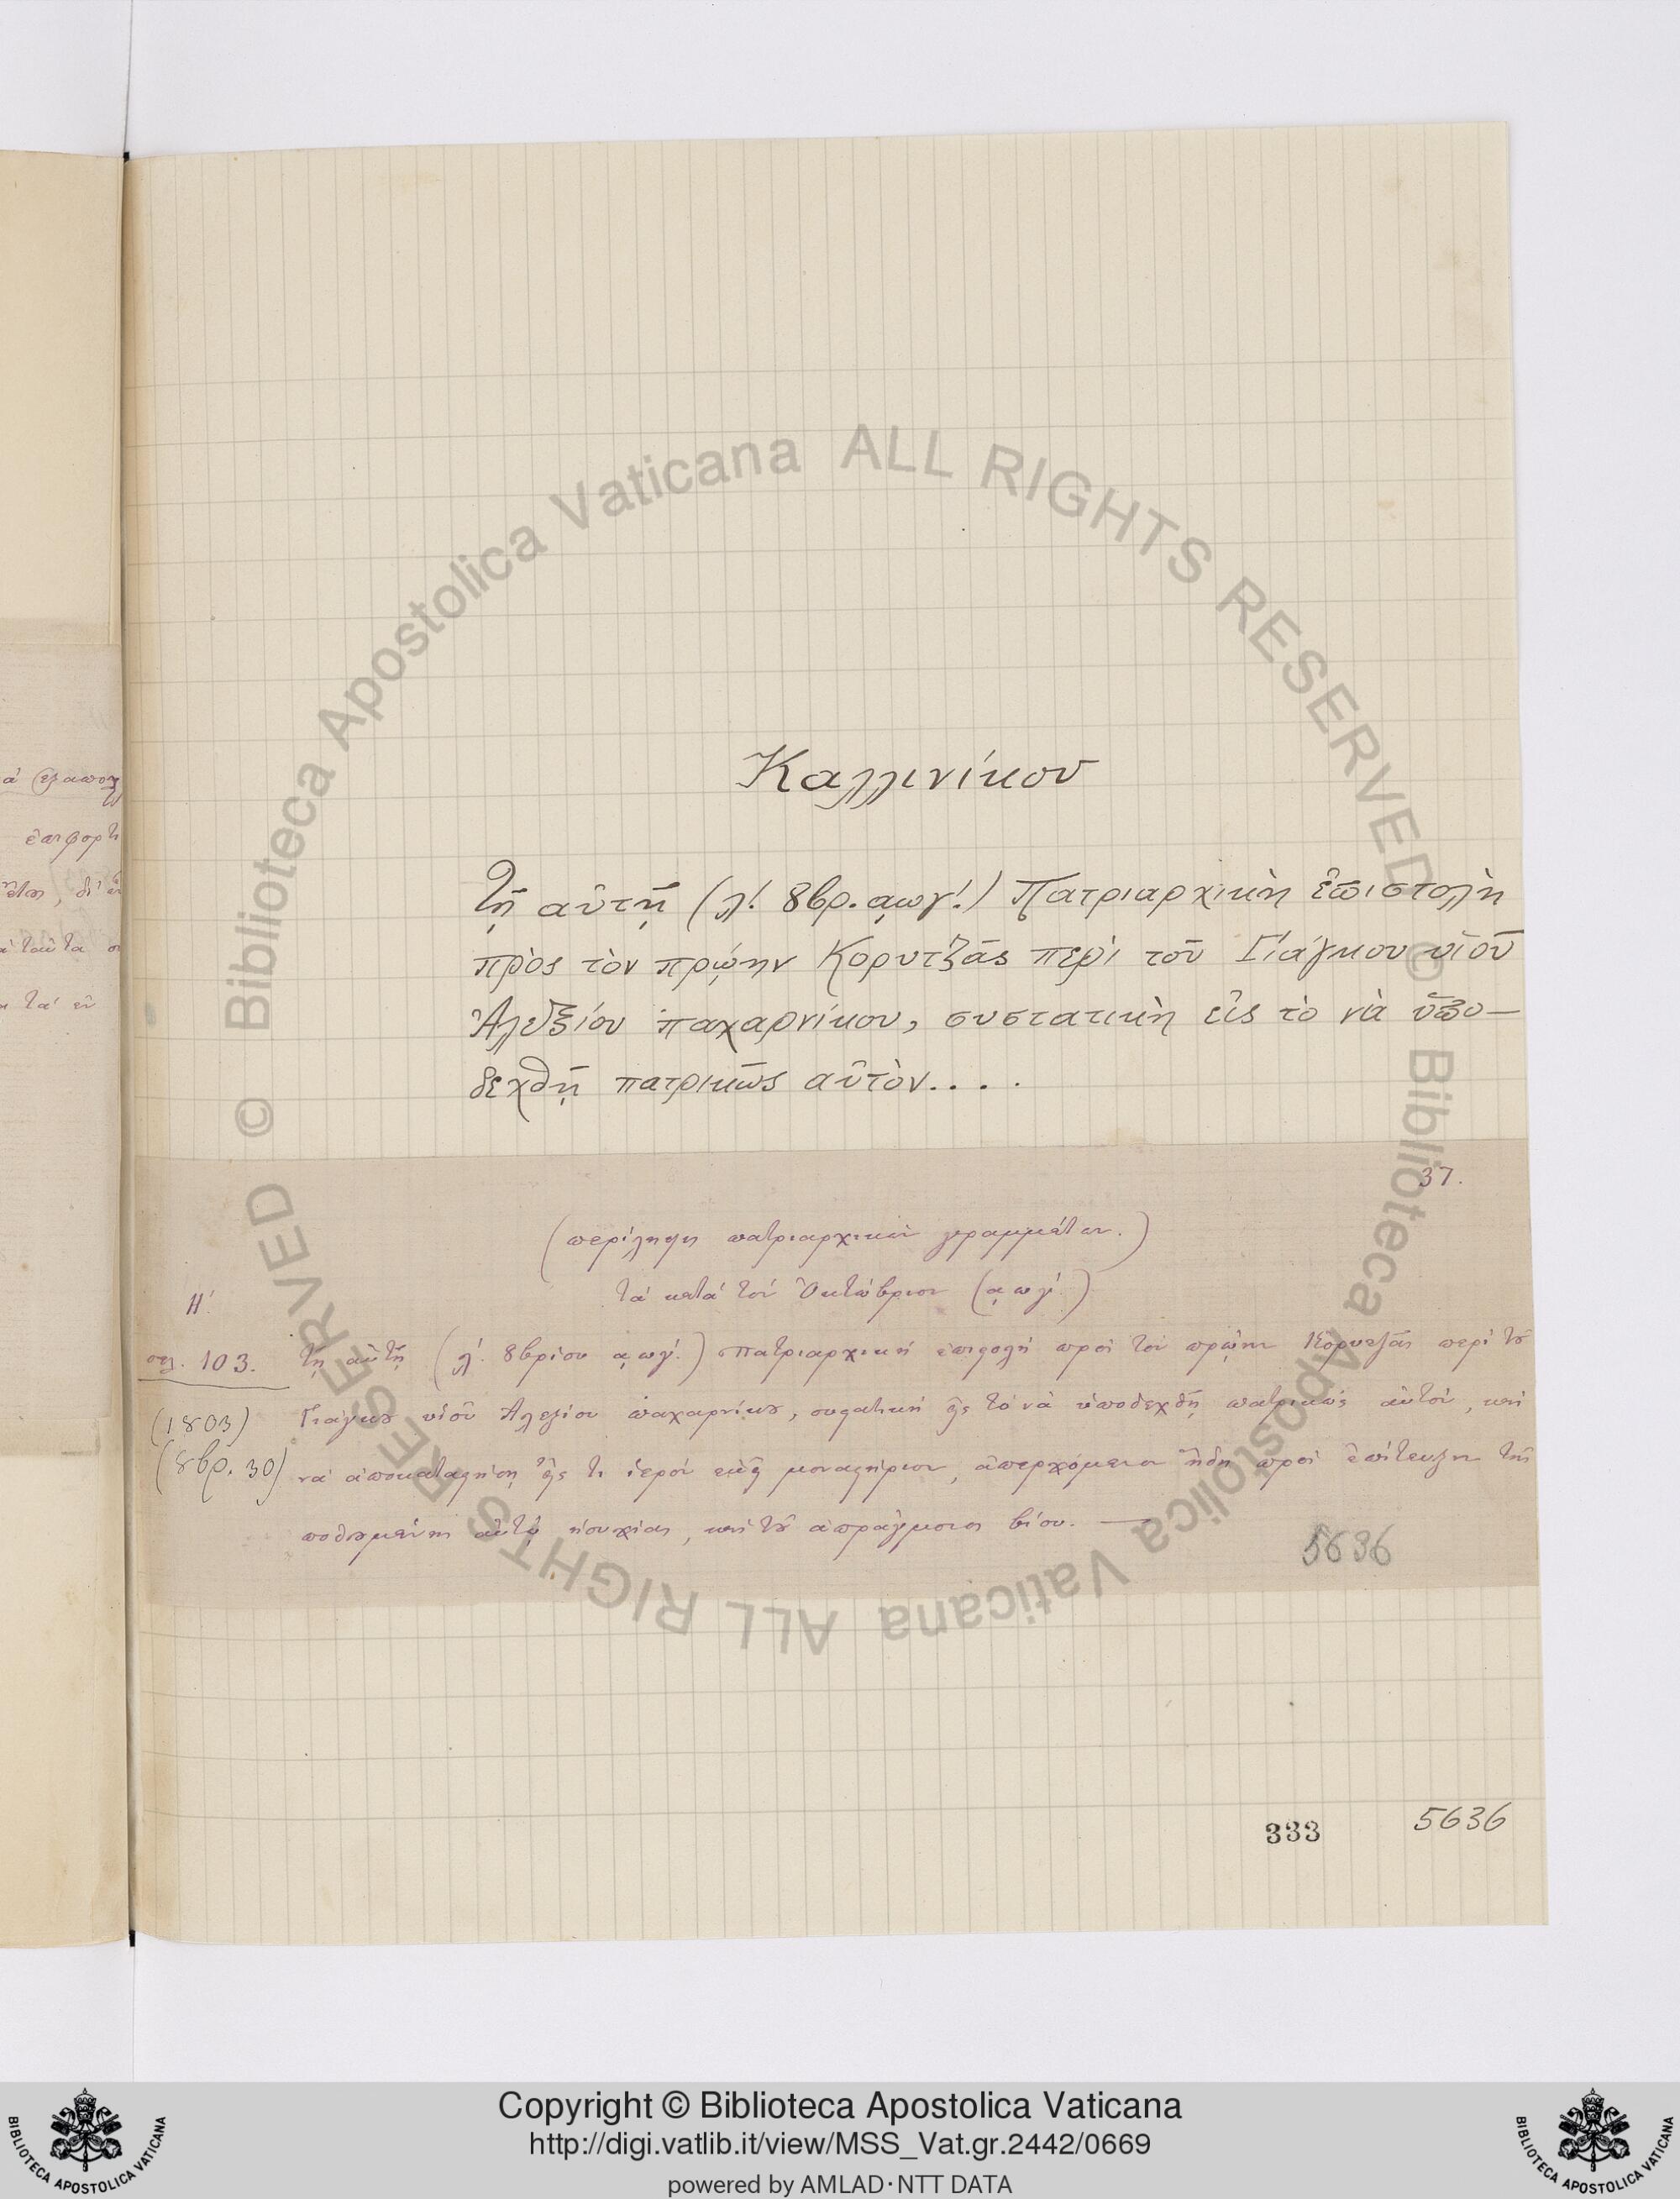 Καλλινίκου
Τῇ αὐτῇ (λ΄. 8βρ. ͵αωγ΄.) Πατριαρχικὴ ἐπιστολὴ
πρὸς τὸν πρῴην Κορυτζᾶς περὶ τοῦ Γιάγκου υἱοῦ
Ἀλεξίου παχαρνίκου, συστατικὴ εἰς τὸ νὰ ὑπο-
δεχθῇ πατρικῶς αὐτὸν....
37.
(περίληψη πατριαρχικῶν γραμμάτων.)
τὰ κατὰ τὸν Ὀκτώβριον (͵αωγ΄.)
Η΄.
σελ. 103.
(1803)
(8βρ. 30)
τῇ αὐτῇ (λ΄. 8βρίου ͵αωγ΄.) πατριαρχικὴ ἐπιστολὴ πρὸς τὸν πρῴην Κορυτζᾶς περὶ τοῦ
Γιάγκου υἱοῦ Ἀλεξίου παχαρνίκου, συστατικὴ εἰς τὸ νὰ ὑποδεχθῇ πατρικῶς αὐτόν, καὶ
νὰ ἀποκαταστήσῃ εἰς τι ἱερὸν ἐκεῖ μοναστήριον, ἀπερχόμενον ἤδη πρὸς ἐπίτευξιν τῆς
ποθουμένης αὐτῷ ἡσυχίας, καὶ τοῦ ἀπράγμονος βίου. —
5636
333
5636
Copyright © Biblioteca Apostolica Vaticana
http://digi.vatlib.it/view/MSS_Vat.gr.2442/0669
powered by AMLAD·NTT DATA
© Biblioteca Apostolica Vaticana ALL RIGHTS RESERVED
© Biblioteca Apostolica Vaticana ALL RIGHTS RESERVED
BIBLIOTECA APOSTOLICA VATICANA
BIBLIOTECA APOSTOLICA VATICANA